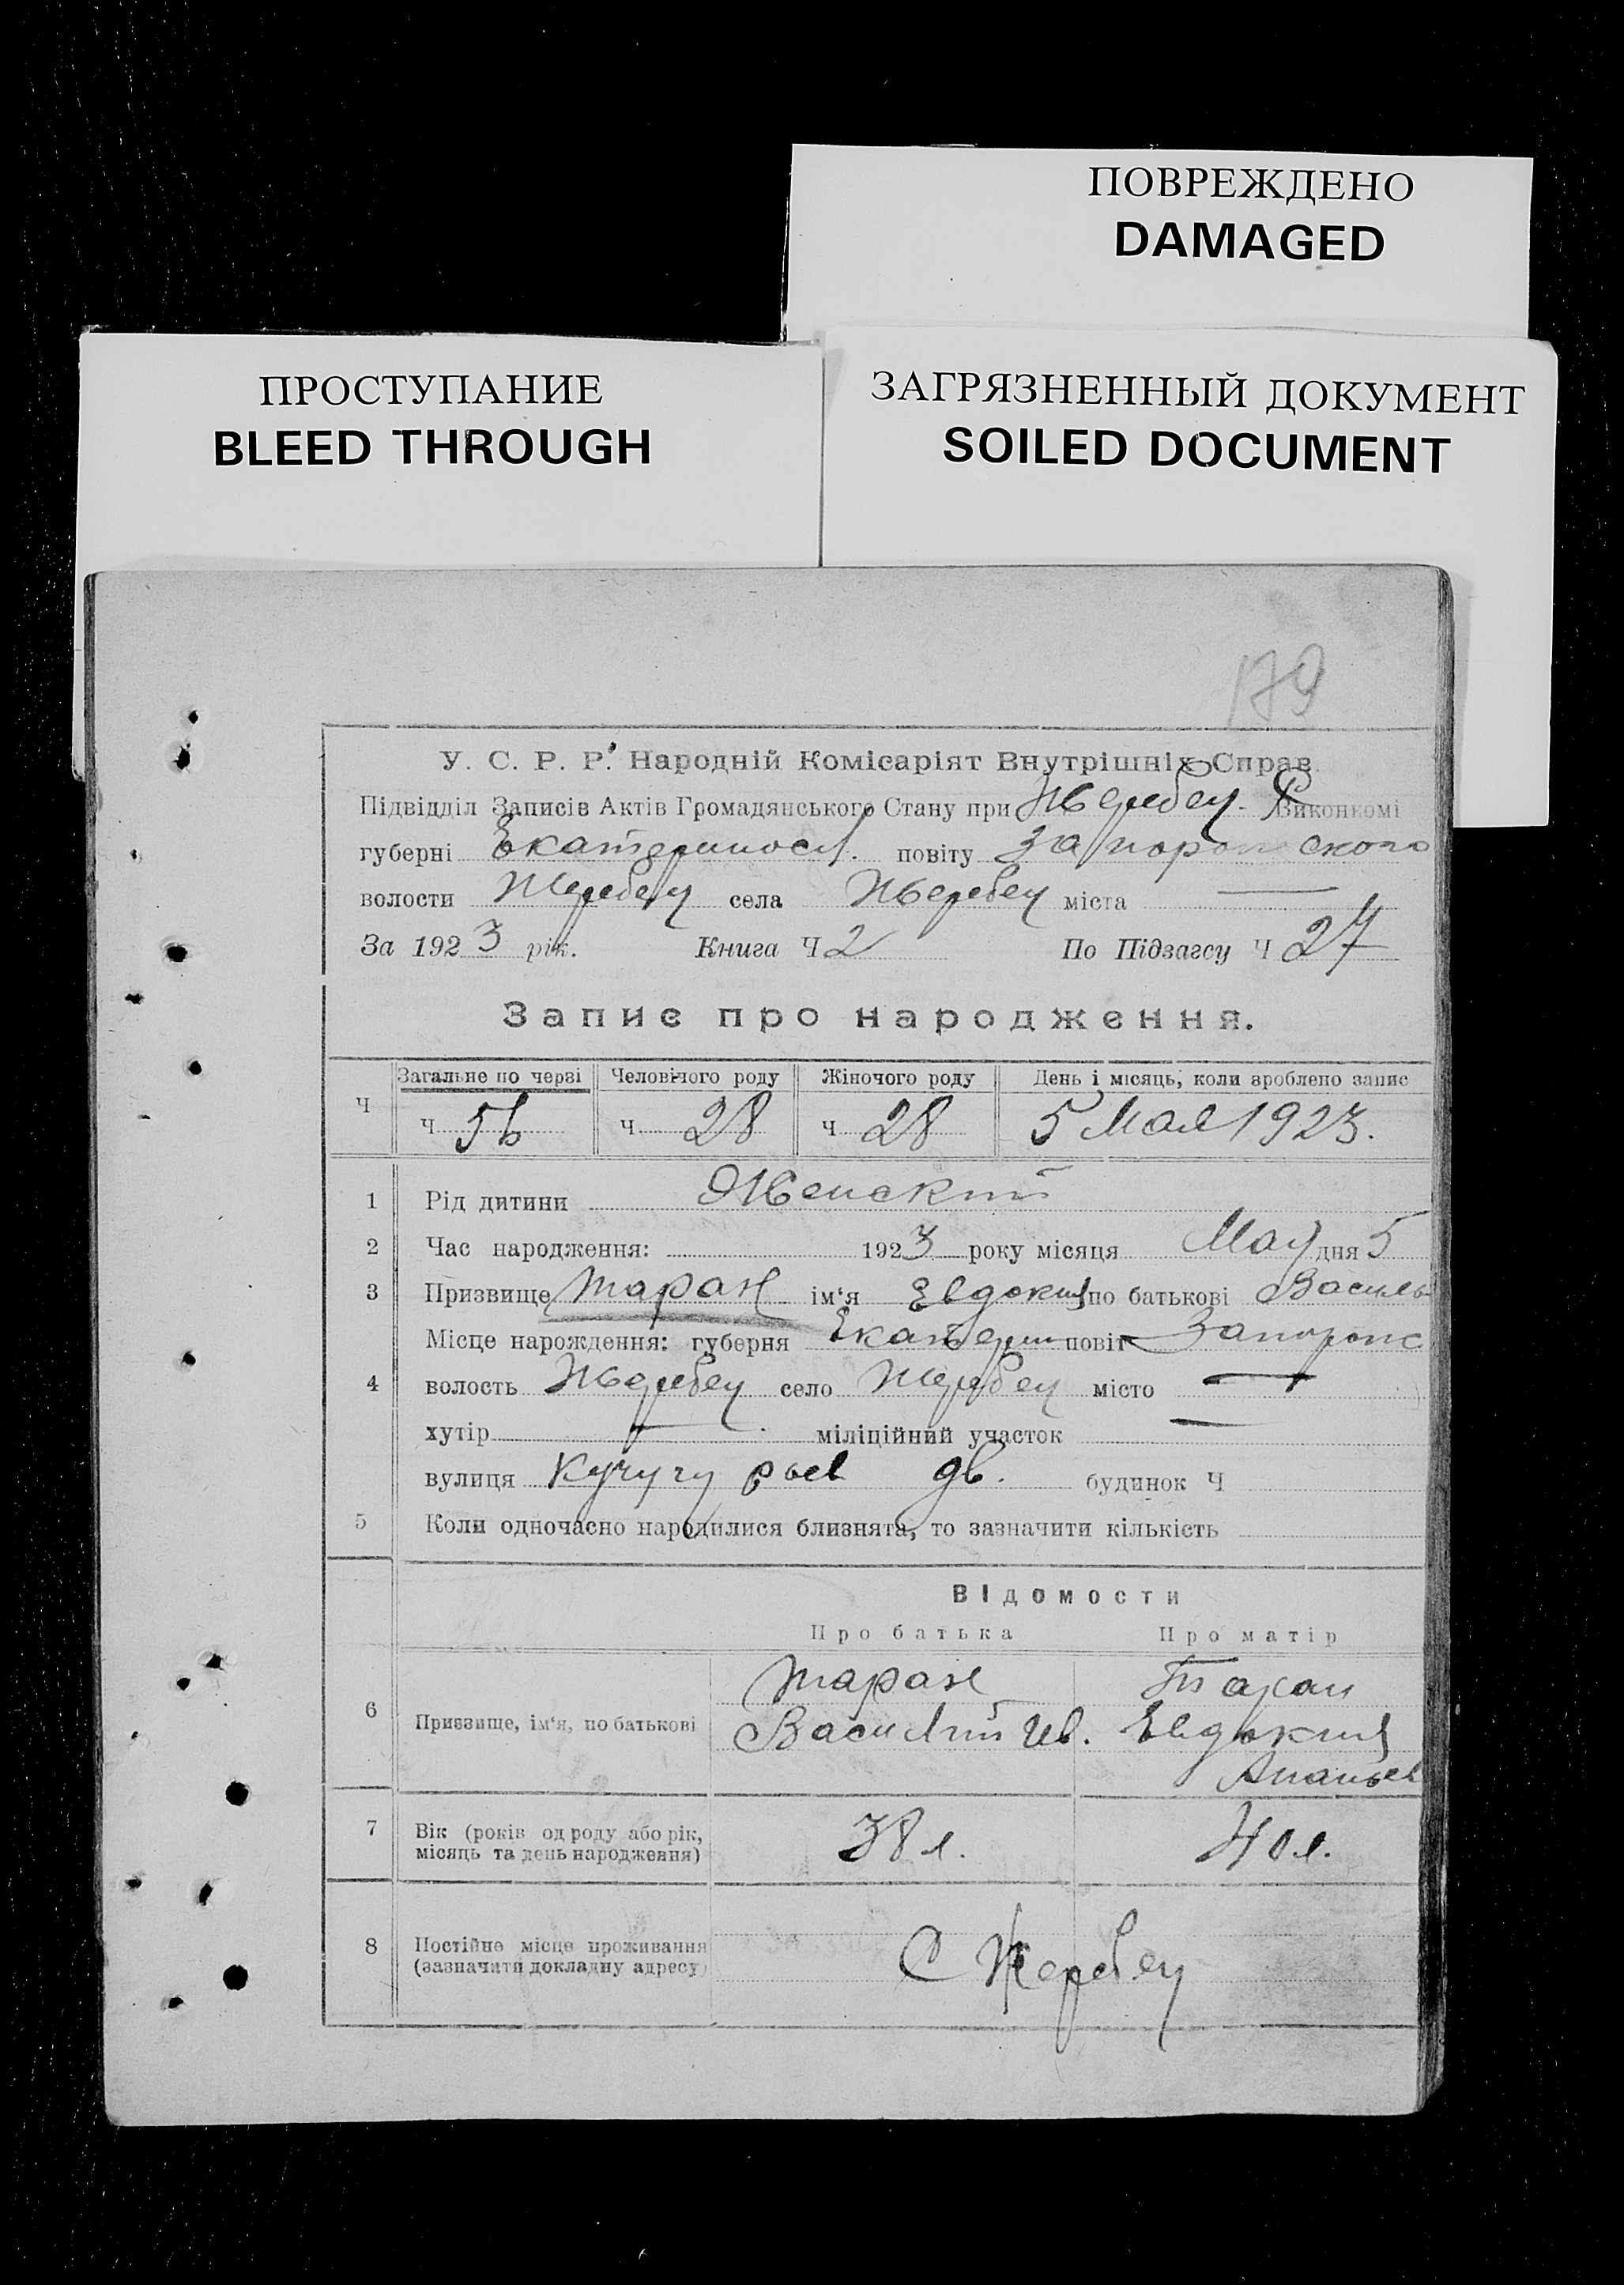 ПОВРЕЖДЕНО
DAMAGED
ПРОСТУПАНИЕ
BLEED THROUGH
ЗАГРЯЗНЕННЫЙ ДОКУМЕНТ
SOILED DOCUMENT
179
У. С. Р. Р. Народній Комісаріят Внутрішніх Справ
Підвідділ Записів Актів Громадянського Стану при Жеребец. Виконкомі
губерні Екатериносл. повіту Запорожского
волости Жеребец села Жеребец міста —
За 1923 рік. Книга Ч 2 По Підзагсу Ч 27
Запис про народження.
Ч Загальне по черзі Человічого роду Жіночого роду День і місяць, коли зроблено запис
Ч 56 Ч 28 Ч 28 5 Мая 1923.
1 Рід дитини Женский
2 Час народження: 1923 року місяця Мая дня 5
3 Призвище Таран ім'я Евдокия по батькові Василь
Місце народження: губерня Екатерин повіт Запорож
4 волость Жеребец село Жеребец місто —
хутір — міліційний участок —
вулиця дв. будинок Ч
5 Коли одночасно народилися близнята, то зазначити кількість
Відомости
Про батька Про матір
6 Призвище, ім'я, по батькові
Таран Таран
Василий Ив. Евдокия
Ананьев
7 Вік (років од роду або рік, місяць та день народження) 38 л. 40 л.
8 Постійне місце проживання (зазначити докладну адресу) С Жеребец